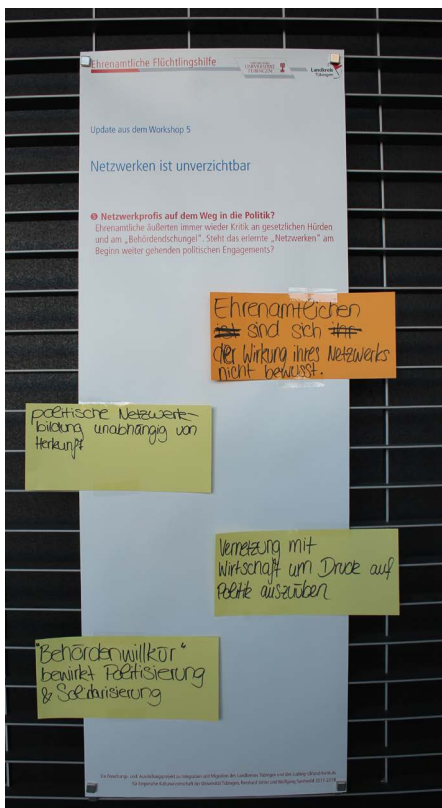 Ehrenamtliche Flüchtlingshilfe
UNIVERSITÄT
TÜBINGEN
Landkreis
Tübingen
Update aus dem Workshop 5
Netzwerken ist unverzichtbar
❺ Netzwerkprofis auf dem Weg in die Politik?
Ehrenamtliche äußerten immer wieder Kritik an gesetzlichen Hürden
und am „Behördendschungel“. Steht das erlernte „Netzwerken“ am
Beginn weiter gehenden politischen Engagements?
Ehrenamtlichen
sind sich
der Wirkung ihres Netzwerks
nicht bewusst.
politische Netzwerk-
bildung unabhängig von
Herkunft
Vernetzung mit
Wirtschaft um Druck auf
Politik auszuüben
"Behördenwillkür"
bewirkt Politisierung
& Solidarisierung
Ein Forschungs- und Ausstellungsprojekt zu Integration und Migration des Landkreises Tübingen und des Ludwig-Uhland-Instituts
für Empirische Kulturwissenschaft der Universität Tübingen,